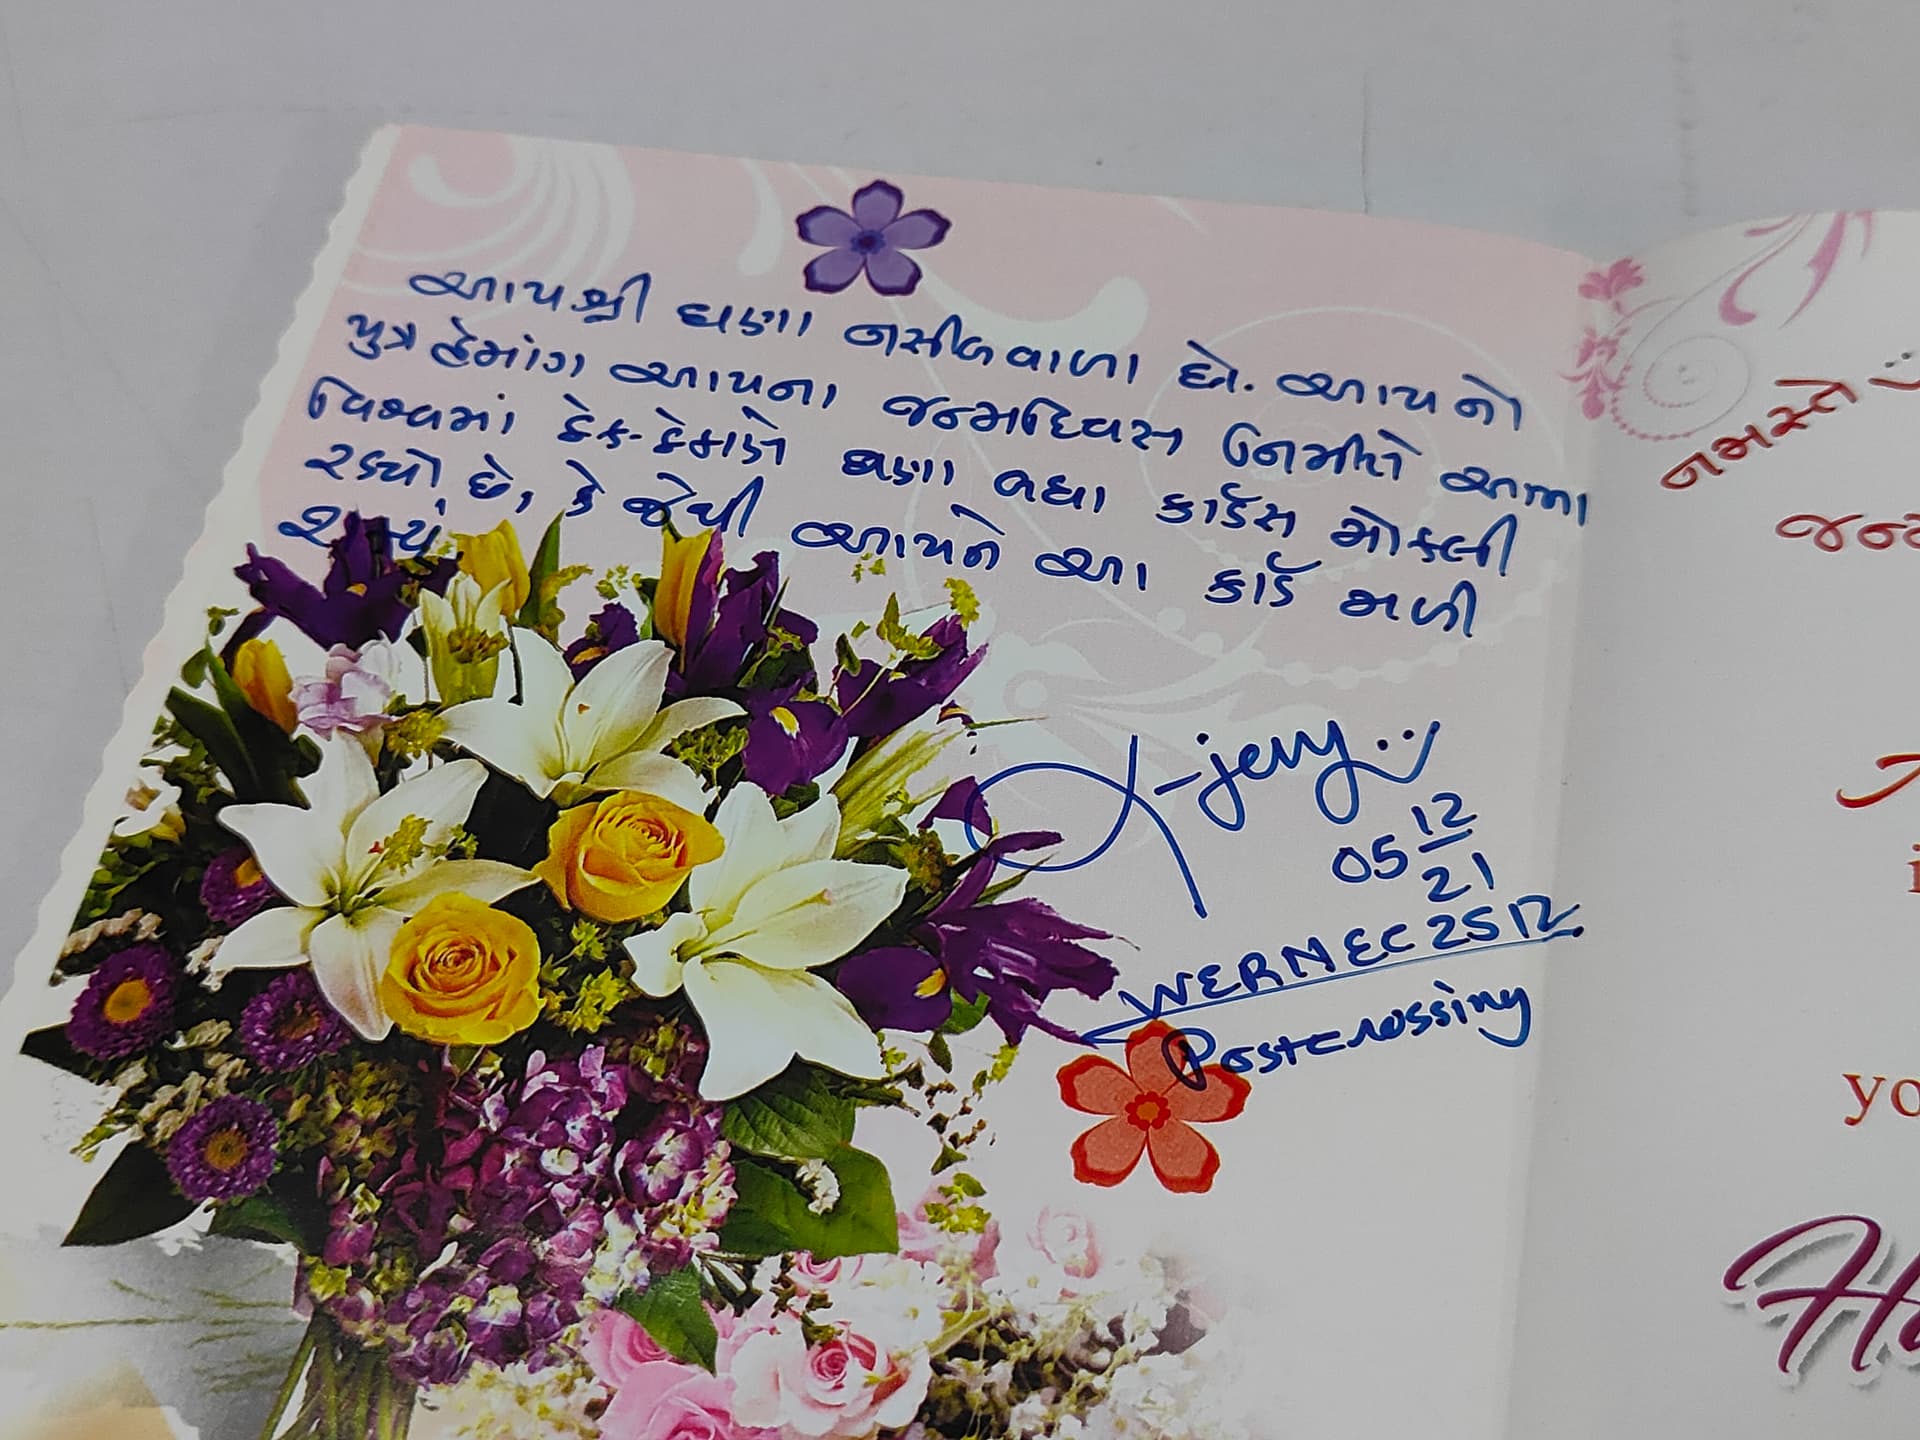 આપશ્રી ઘણા નસીબવાળા છો. આપનો
પુત્ર હેમાંગ આપના જન્મદિવસ નિમીત્તે આખા
વિશ્વમાં ઠેક-ઠેકાણે ઘણા બધા કાર્ડસ મોકલી
રહ્યો છે, કે જેથી આપને આ કાર્ડ મળી
શક્યું.
jeny
05 12
21
WERNEC2512
Postcrossing
નમસ્તે
જન્મ
i
yo
Ha